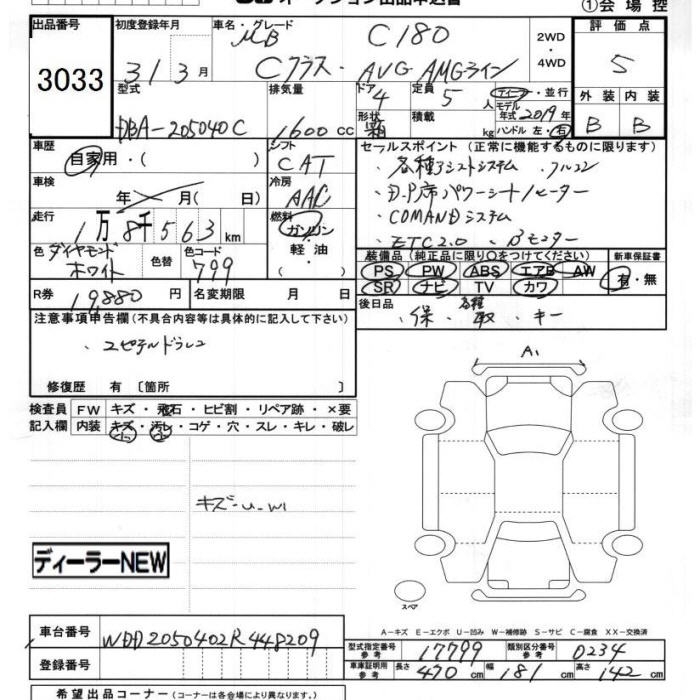 オークション出品申込書
①会場控
出品番号
3033
初度登録年月
31 3 月
車名・グレード
MB C180
Cクラス・AVG AMGライン
2WD
・
4WD
評価点
5
型式
DBA-205040C
排気量
1600 cc
ドア
4
形状
箱
定員
5 人
積載
kg
ディーラ・並行
モデル
年式 2019 年
ハンドル 左・右
外装 内装
B B
車歴
自家用・( )
シフト
CAT
車検
年 月( 日)
冷房
AAC
走行
1万8千563 km
燃料
ガソリン
・
軽油
・
色 ダイヤモンド
ホワイト
色替
色コード
799
R券 19,880 円
名変期限 月 日
セールスポイント(正常に機能するものに限ります)
・各種アシストシステム ・フルコン
・D.P席パワーシート/ヒーター
・COMANDシステム
・ETC2.0 ・Bモニター
装備品(純正品に限り○をつけてください)
PS PW ABS エアB AW
SR ナビ TV カワ
新車保証書
有・無
後日品
・保・各種取・キー
注意事項申告欄(不具合内容等は具体的に記入して下さい)
修復歴 有〔箇所 〕
検査員
記入欄
FW キズ・飛石・ヒビ割・リペア跡・×要
内装 キズ・汚レ・コゲ・穴・スレ・キレ・破レ
キズ-U-W1
ディーラーNEW
A1
スペア
A-キズ E-エクボ U-凹み W-補修跡 S-サビ C-腐食 XX-交換済
車台番号
WDD2050402R448209
登録番号
型式指定番号
参考
17799
類別区分番号
参考
0234
車庫証明用
参考
長さ 470 cm 幅 181 cm 高さ 142 cm
希望出品コーナー(コーナーは各会場により異なります。)